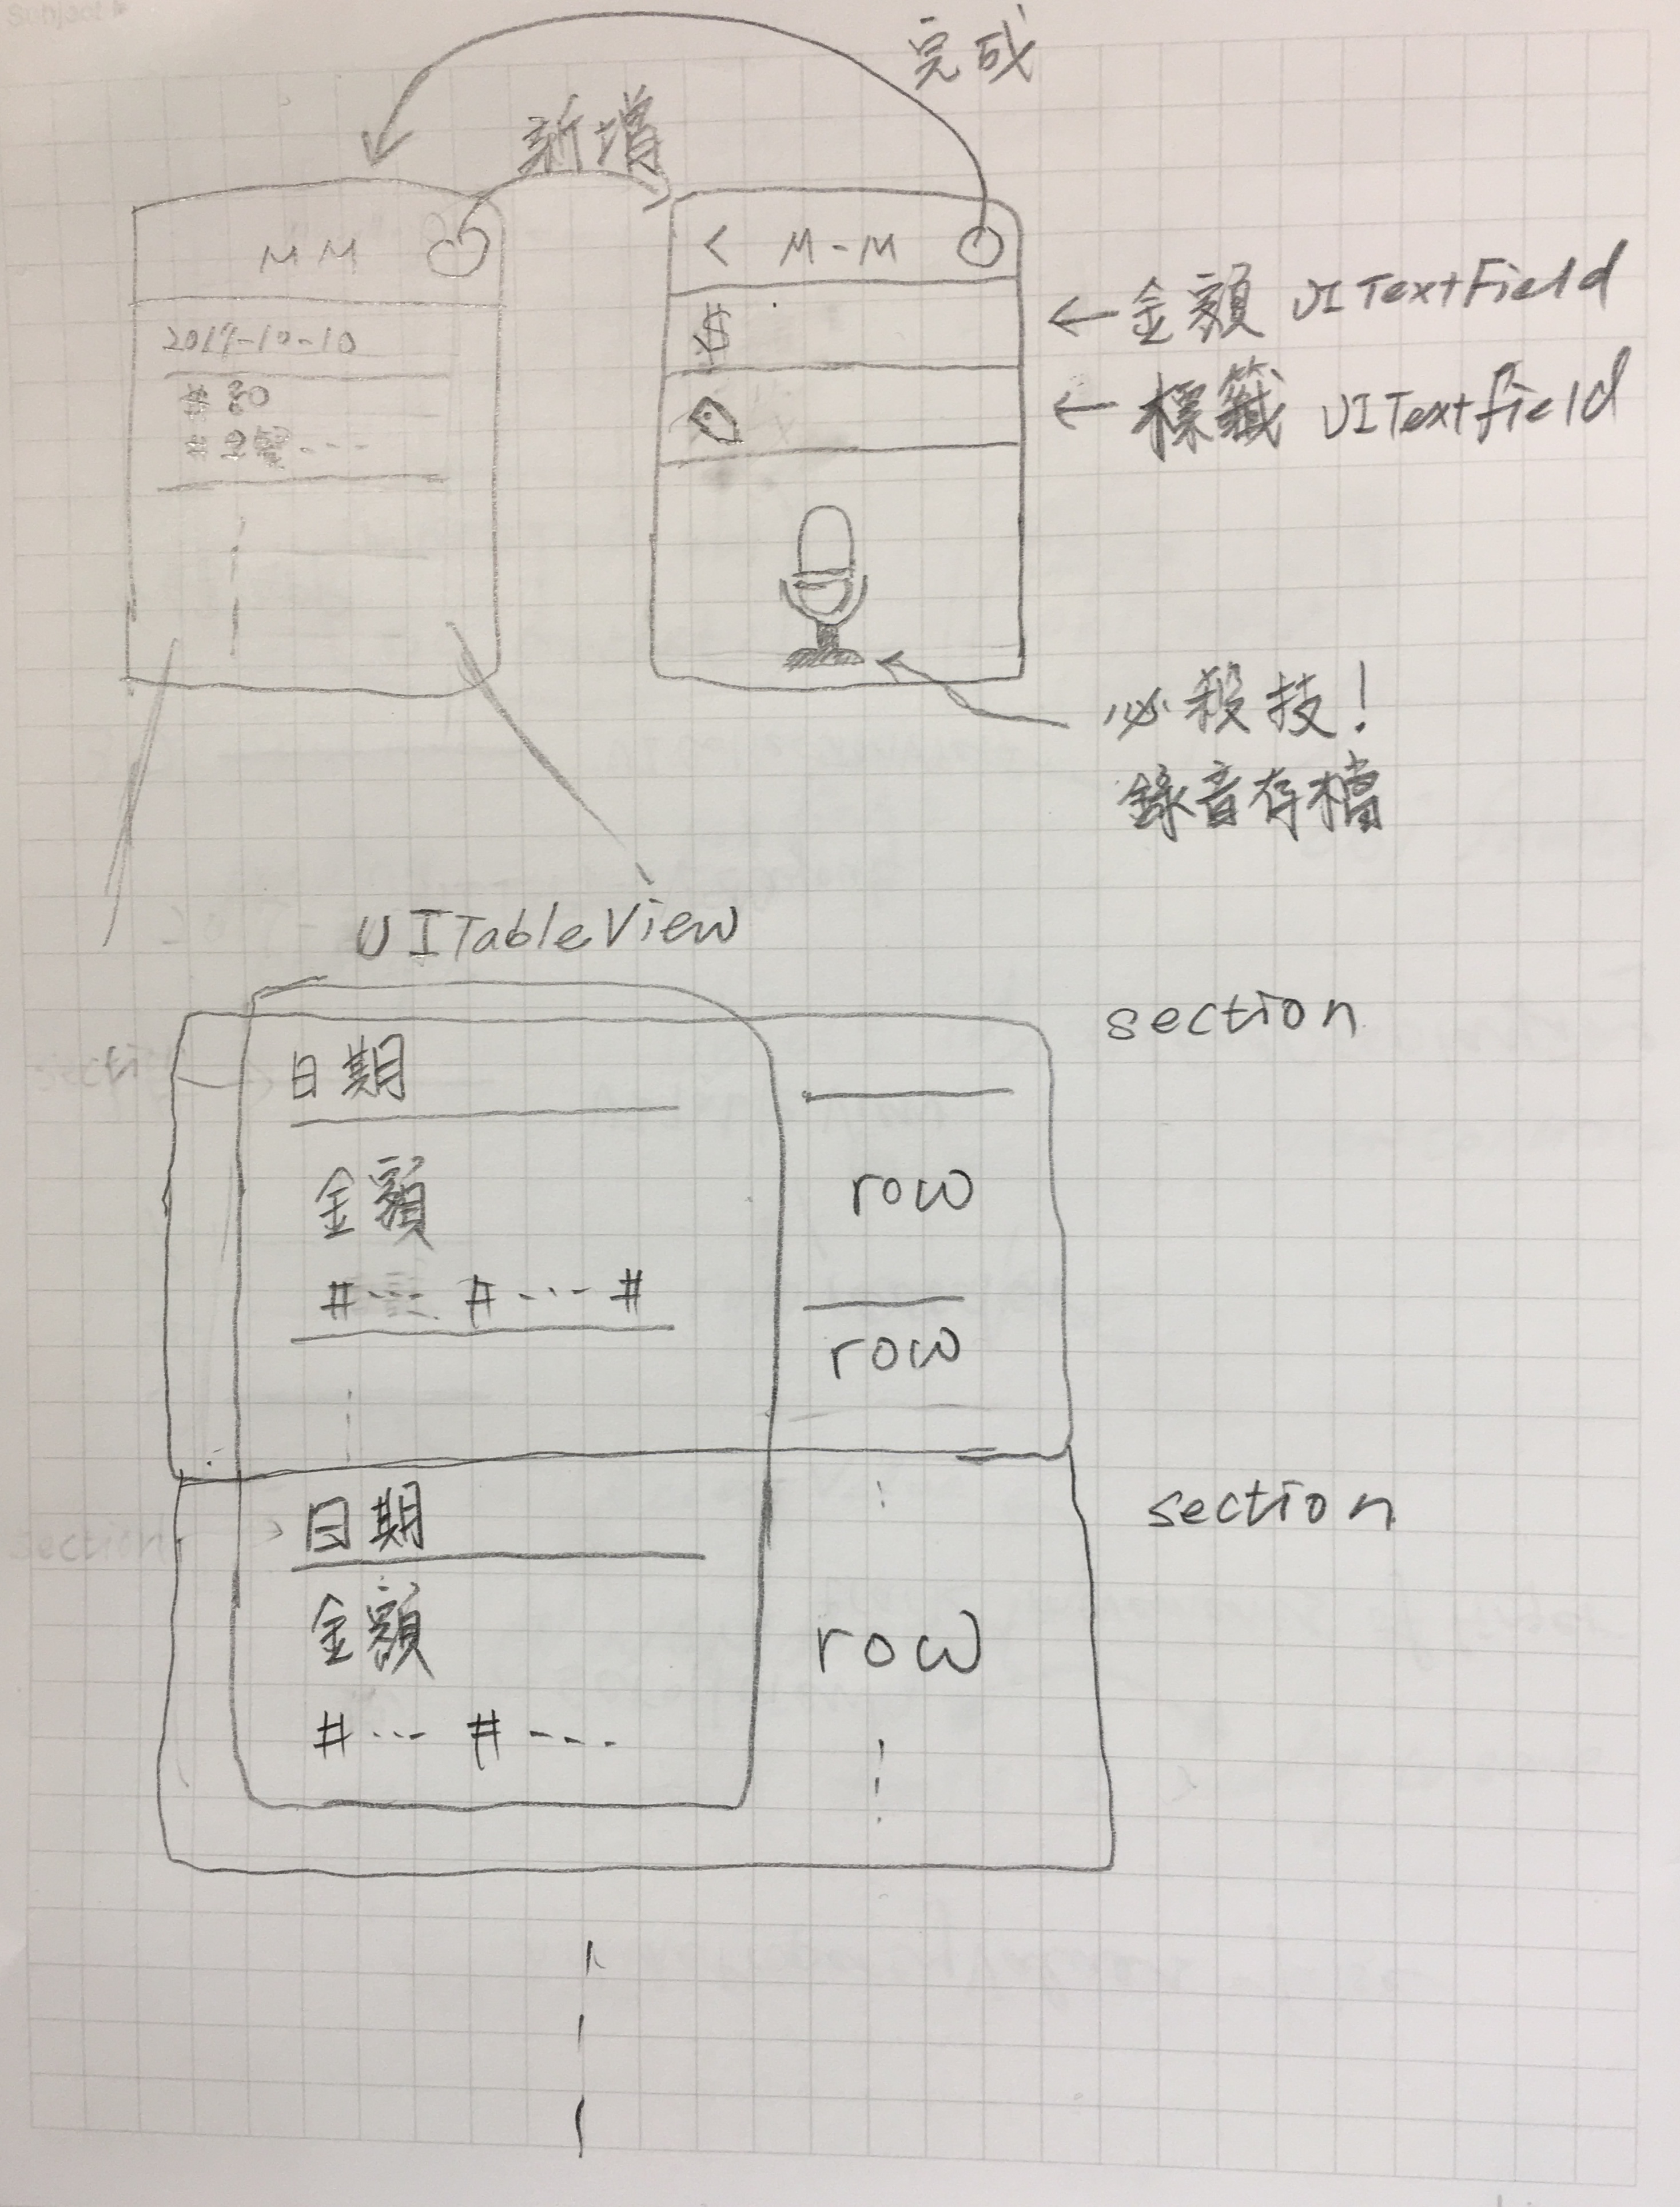 Subject
完成
新增
MM
< M-M
2017-10-10
$
←金額 UITextField
$ 30
←標籤 UITextfield
必殺技!
錄音存檔
UITableView
section
日期
金額
row
#... #...#
row
section
日期
金額
row
#... #...